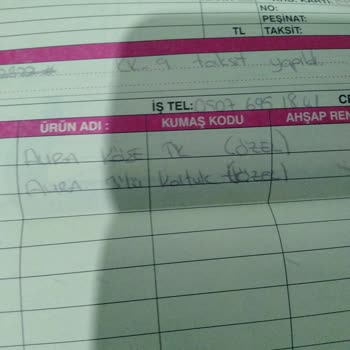 NO:
PEŞİNAT:
TL TAKSİT:
KK 9 taksit yapıldı
İŞ TEL: 0507 695 1841
ÜRÜN ADI : KUMAŞ KODU AHŞAP REN
AURA KÖŞE TK (ÖZEL)
AURA Koltuk (ÖZEL)